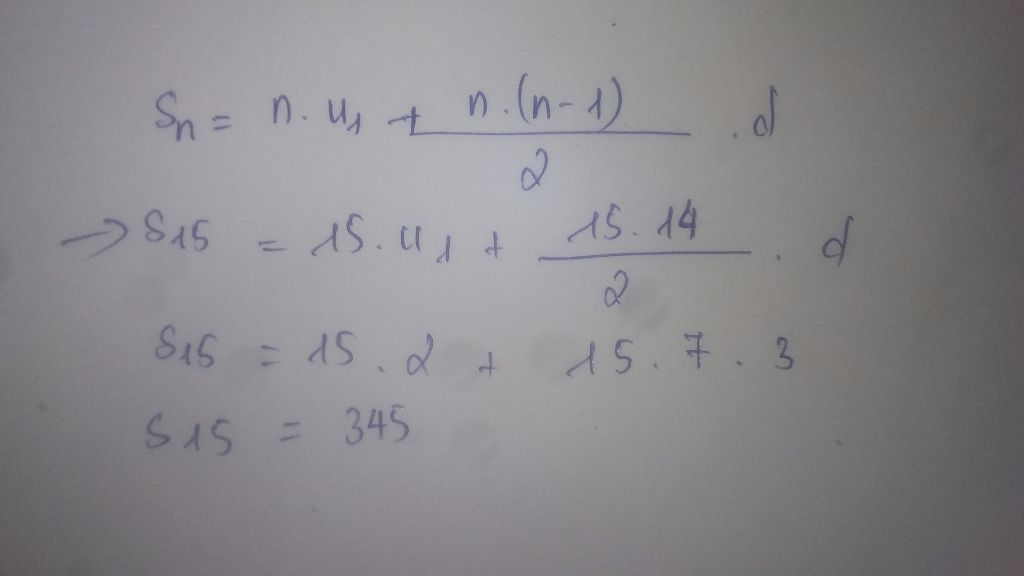 Sn = n. u1 + n.(n-1)/2 . d
→ S15 = 15. u1 + 15.14/2 . d
S15 = 15.2 + 15.7.3
S15 = 345